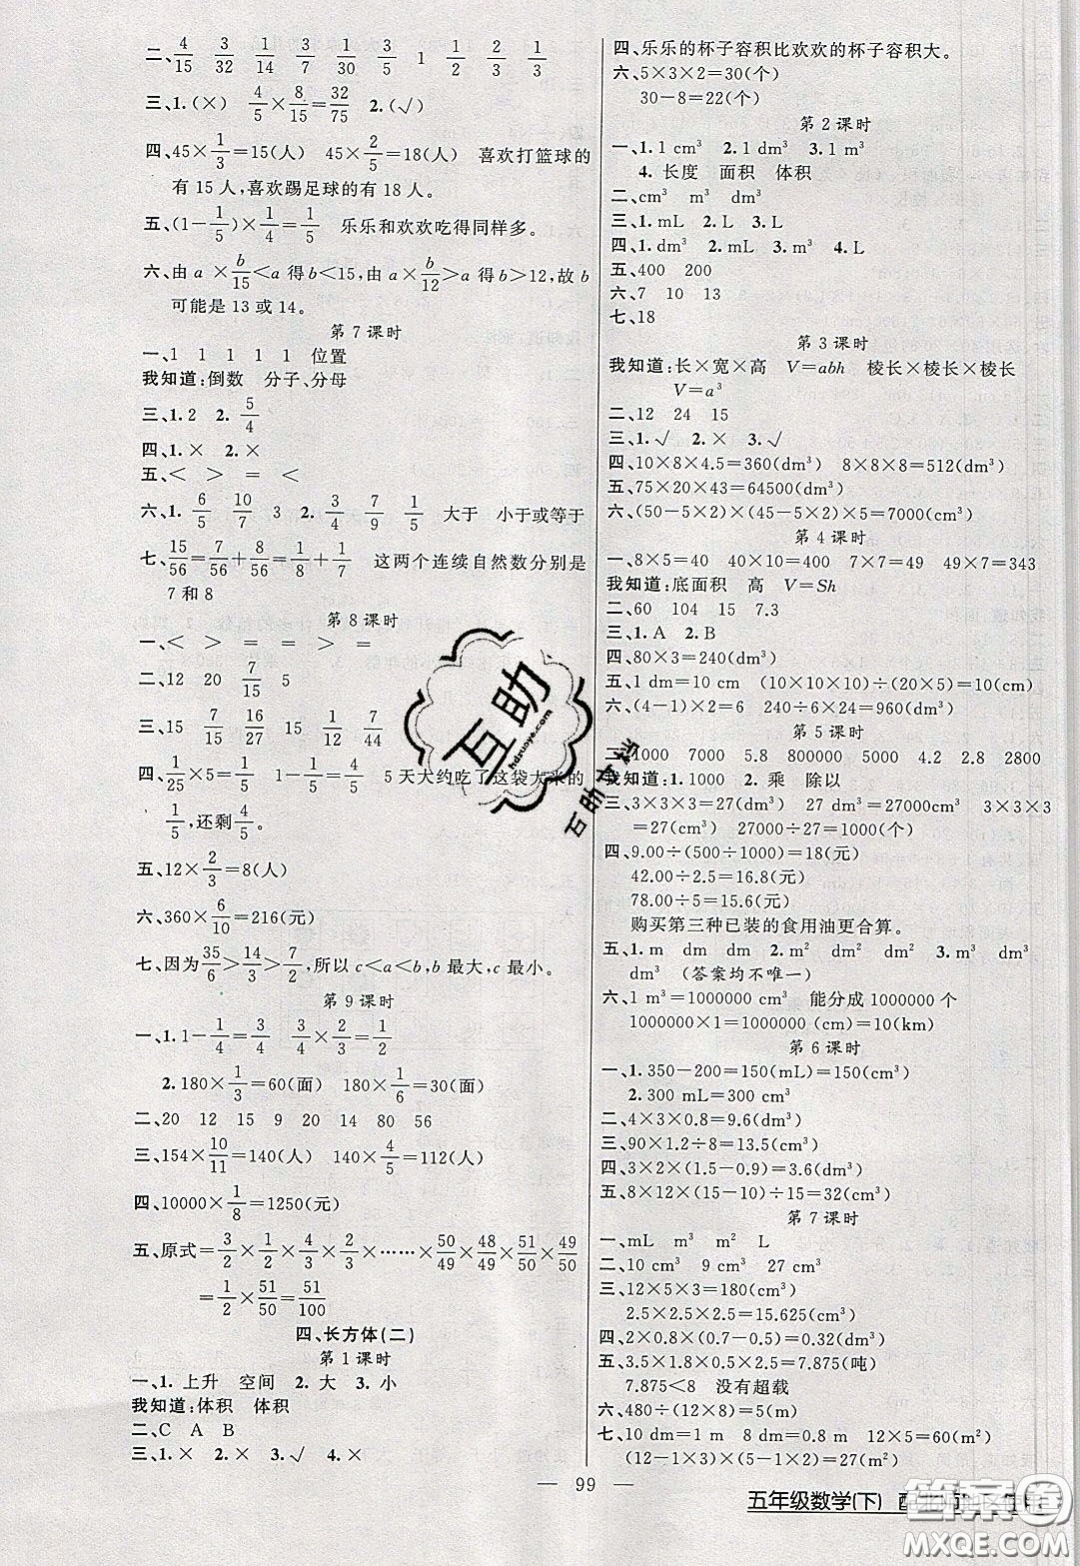 二、4/15 3/32 1/14 3/7 1/30 5/3 1 1/2 1/3
三、1.(×) 4/5×8/15=32/75 2.(√)
四、45×1/3=15(人) 45×2/5=18(人) 喜欢打篮球的
有 15 人,喜欢踢足球的有 18 人。
五、(1-1/5)×1/4=1/5 乐乐和欢欢吃得同样多。
六、由 a×b/15<a 得 b<15,由 a×b/12>a 得 b>12,故 b
可能是 13 或 14。
第 7 课时
一、1 1 1 1 位置
我知道:倒数 分子、分母
三、1.2 2. 5/4
四、1.× 2.×
五、< > = <
六、1. 6/5 10/7 3 2. 3/4 7/9 1/5 大于 小于或等于
七、15/56=7/56+8/56=1/8+1/7 这两个连续自然数分别是
7 和 8
第 8 课时
一、< > = = > =
二、12 20 7/15 5
三、15 7/15 16/27 15 1/12 7/44
四、1/25×5=1/5 1-1/5=4/5 5 天大约吃了这袋大米的
1/5,还剩4/5。
五、12×2/3=8(人)
六、360×6/10=216(元)
七、因为35/6>14/3>7/2,所以 c<a<b,b 最大,c 最小。
第 9 课时
一、1.1-1/4=3/4 3/4×2/3=1/2
2.180×1/3=60(面) 180×1/6=30(面)
二、20 12 15 9 20 14 80 56
三、154×10/11=140(人) 140×4/5=112(人)
四、10000×1/8=1250(元)
五、原式=3/2×1/2×4/3×2/3×……×50/49×48/49×51/50×49/50
=1/2×51/50=51/100
四、长方体(二)
第 1 课时
一、1.上升 空间 2.大 3.小
我知道:体积 体积
二、C A B
三、1.× 2.× 3.√ 4.×
四、乐乐的杯子容积比欢欢的杯子容积大。
六、5×3×2=30(个)
30-8=22(个)
第 2 课时
一、1.1 cm³ 2.1 dm³ 3.1 m³
4.长度 面积 体积
二、cm³ m³ dm³
三、1.mL 2.L 3.L
四、1.dm³ 2.mL 3.m³ 4.L
五、400 200
六、7 10 13
七、18
第 3 课时
我知道:长×宽×高 V=abh 棱长×棱长×棱长
V=a³
二、12 24 15
三、1.√ 2.× 3.√
四、10×8×4.5=360(dm³) 8×8×8=512(dm³)
五、75×20×43=64500(dm³)
六、(50-5×2)×(45-5×2)×5=7000(cm³)
第 4 课时
一、8×5=40 40×10=400 7×7=49 49×7=343
我知道:底面积 高 V=Sh
二、60 104 15 7.3
三、1.A 2.B
四、80×3=240(dm³)
五、1 dm=10 cm (10×10×10)÷(20×5)=10(cm)
六、(4-1)×2=6 240÷6×24=960(cm³)
第 5 课时
二、1000 7000 5.8 800000 5000 4.2 2.8 2800
我知道:1.1000 2.乘 除以
三、3×3×3=27(dm³) 27 dm³=27000cm³ 3×3×3
=27(cm³) 27000÷27=1000(个)
四、9.00÷(500÷1000)=18(元)
42.00÷2.5=16.8(元)
78.00÷5=15.6(元)
购买第三种已装的食用油更合算。
五、1.m dm dm 2.m² dm² dm² 3.m³ dm³
dm³ (答案均不唯一)
六、1 m³=1000000 cm³ 能分成 1000000 个
1000000×1=1000000 (cm)=10(km)
第 6 课时
一、1.350-200=150(mL)=150(cm³)
2.300 mL=300 cm³
二、4×3×0.8=9.6(dm³)
三、90×1.2÷8=13.5(cm³)
四、3×2×(1.5-0.9)=3.6(dm³)
五、8×12×(15-10)÷15=32(cm³)
第 7 课时
一、mL m³ m² L
二、10 cm³ 9 cm³ 27 cm³
三、12×5×3=180(cm³)
2.5×2.5×2.5=15.625(cm³)
四、2×0.8×(0.7-0.5)=0.32(dm³)
五、3.5×1.8×0.5×2.5=7.875(吨)
7.875<8 没有超载
六、480÷(12×8)=5(m)
七、10 dm=1 m 8 dm=0.8 m 12×5=60(m²)
(12-1×2)×(5-1×2)=27(m²)
— 99 —
五年级数学(下)
互助
hdzuoye.com
答案圈
MXQE.COM